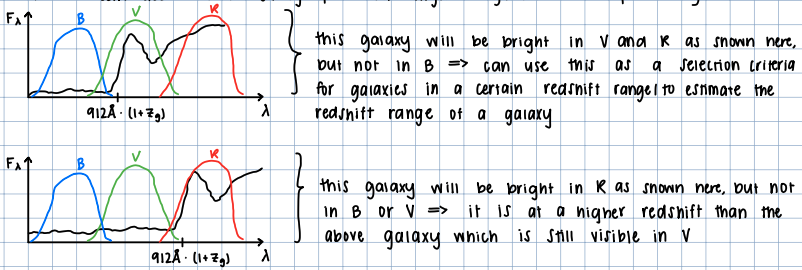 Fλ B V R
912Å · (1+zg) λ
this galaxy will be bright in V and R as shown here,
but not in B => can use this as a selection criteria
for galaxies in a certain redshift range | to estimate the
redshift range of a galaxy
Fλ B V R
912Å · (1+zg) λ
this galaxy will be bright in R as shown here, but not
in B or V => it is at a higher redshift than the
above galaxy which is still visible in V